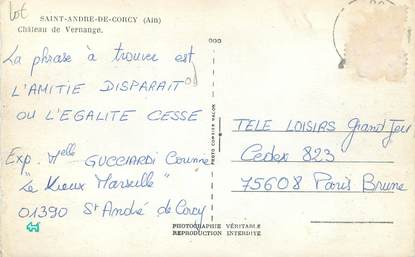 Lot
SAINT-ANDRE-DE-CORCY (Ain)
Château de Vernange.
La phrase à trouver est
L'AMITIE DISPARAIT
OU L'EGALITE CESSE
Exp. Melle GUCCIARDI Corinne
"Le Vieux Marseille"
01390 St André de Corcy
PHOTO COMBIER MACON
TELE LOISIRS Grand Jeu
Cedex 823
75608 Paris Brune
PHOTOGRAPHIE VÉRITABLE
REPRODUCTION INTERDITE